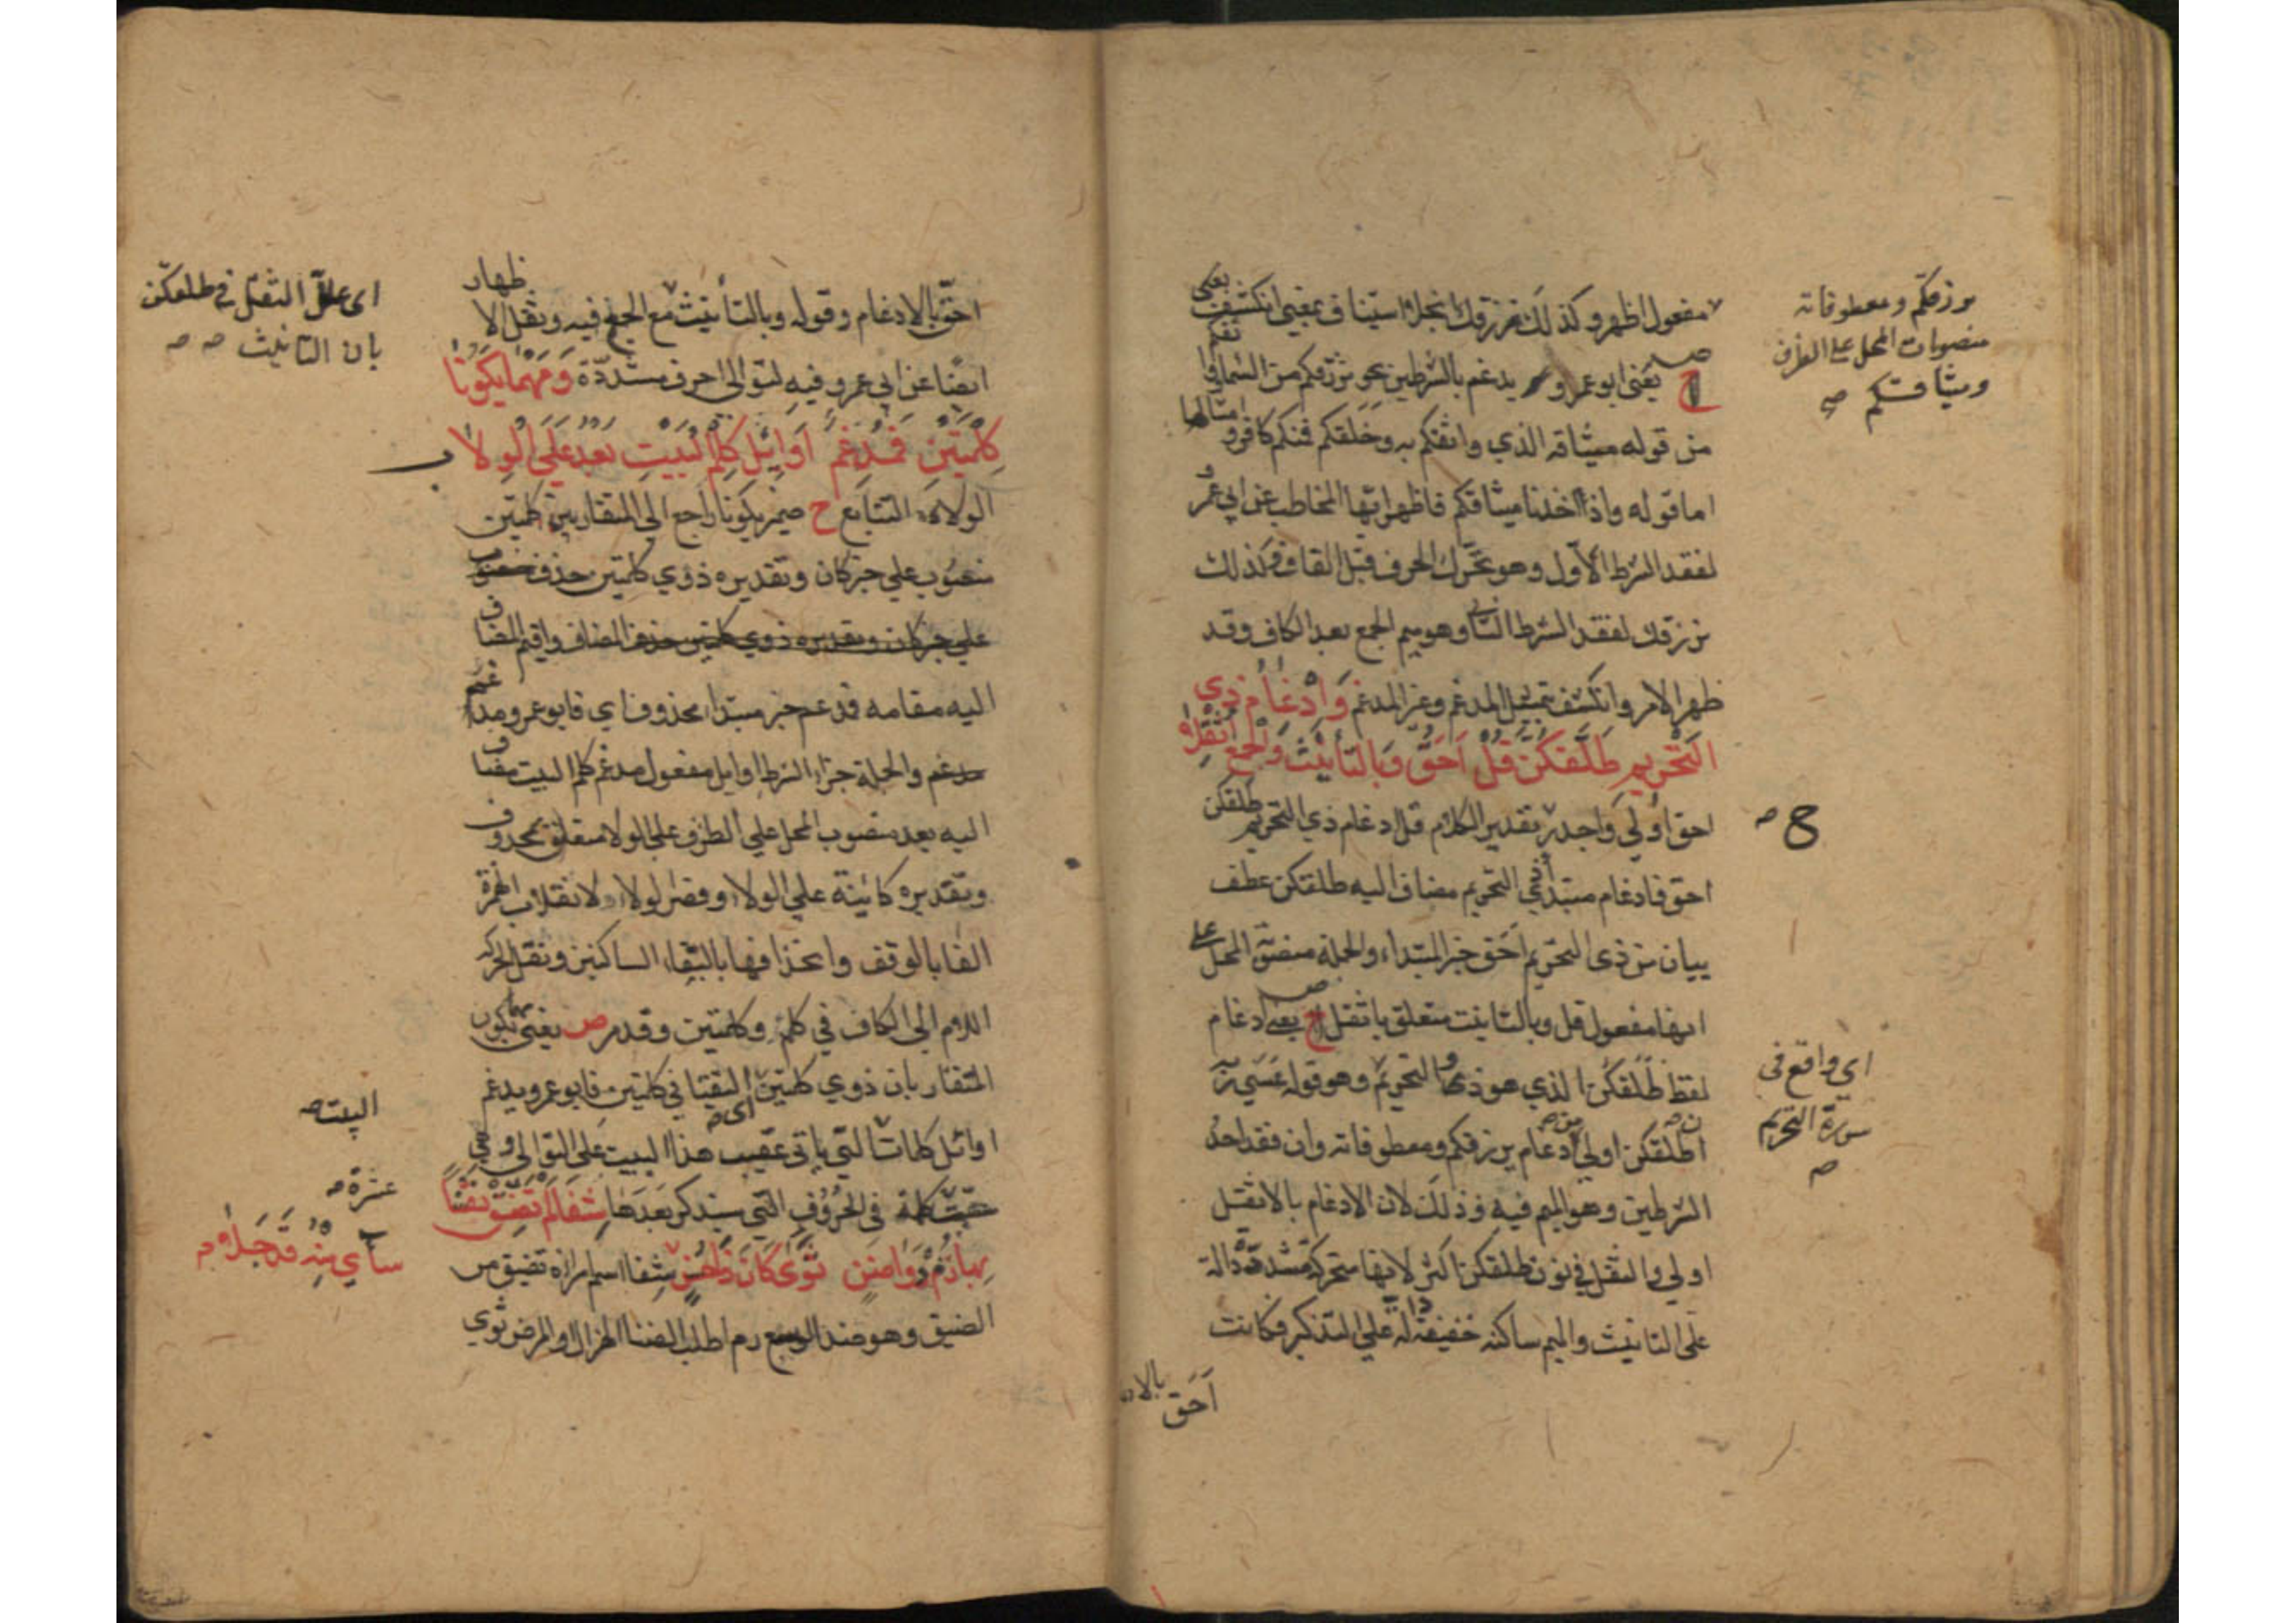 مفعول اظهر وكذلك نرزقك انجلا استيناف بمعنى انكشف
ح يعنى ابو عمرو يدغم بالشرطين نحو يرزقكم من السماء واثقكم
من قوله ميثاقه الذي واثقكم به وخلقكم فمنكم كافر و امثالها
اما قوله واذ اخذنا ميثاقكم فاظهر ايها المخاطب عن ابي عمرو
لفقد الشرط الاول وهو تحرك الحرف قبل القاف وكذلك
نرزقك لفقد الشرط الثاني وهو ميم الجمع بعد الكاف وقد
ظهر الامر وانكشف بتمثيل المدغم وغير المدغم وَاِدْغَامُ ذِي
التَّحْرِيمِ طَلَّقَكُنَّ قُلْ اَحَقُّ وَبِالتَّأْنِيثِ وَالْجَمْعِ اُثْقِلَا
احق اولى واجدر تقدير الكلام قل ادغام ذي التحريم طلقكن
احق فادغام مبتدأ ذي التحريم مضاف اليه طلقكن عطف
بيان من ذى التحريم احق خبر المبتداء والجملة منصوب المحل على
انها مفعول قل وبالتانيث متعلق باثقل ح يعنى ادغام
لفظ طلقكن الذي هو في التحريم وهو قوله عسى ربه
ان طلقكن اولى من ادغام يرزقكم ومعطوفاته وان فقد احد
الشرطين وهو الميم فيه وذلك لان الادغام بالاثقل
اولى والثقل في نون طلقكن اكثر لانها متحركة مشددة دالة
على التانيث والميم ساكنة خفيفة دالة على التذكير فكانت
احق بالاد
يرزقكم ومعطوفاته
منصوبات المحل على الظرف
وميثاقكم صح
ح
اي واقع فى
سورة التحريم
احق بالادغام وقوله وبالتأنيث مع الجمع فيه ونقل الاظهار
ايضا عن ابي عمرو فيه لتوالى احرف مشددة وَمَهْمَا يَكُونَا
كِلْمَتَيْنِ فَمُدْغِمٌ اَوَائِلَ كِلْمِ الْبَيْتِ بَعْدُ عَلَى الْوِلَا
الولاء التتابع ح ضمير يكونا راجع الى المتقاربين كلمتين
منصوب على خبر كان وتقديره ذوي كلمتين حذف منصوب
على خبر كان وتقديره ذوي كلمتين حذف المضاف واقيم المضاف
اليه مقامه فمدغم خبر مبتدا محذوف اي فابو عمرو مدغم
مدغم والجملة جزاء الشرط اوايل مفعول مدغم كلم البيت مضاف
اليه بعد منصوب المحل على الظرف على الولا متعلق بمحذوف
وتقديره كائنة على الولاء وقصر الولاء لانقلاب الهمزة
الفا بالوقف وانحذافها بالتقاء الساكنين ونقل الحركة
اللام الى الكاف في كلم وكلمتين وقد مر ص يعنى مهما يكون
المتقاربان ذوي كلمتين اى التقيا في كلمتين فابو عمرو يدغم
اوائل كلمات التي ياتى عقيب هذا البيت على التوالى وهي
ستة كلمة فى الحروف التي سيذكر بعدها شِفَا لَمْ تَضِقْ نَفْسًا
بِهَا رُمْ دَوَا ضَنٍ ثَوَى كَانَ ذَا حُسْنٍ شفا اسم امراة تضيق من
الضيق وهو ضد الوسع رم اطلب الضنا الهزال والمرض ثوي
اى علل الثقل في طلقكن
بان التانيث
البيت
عشرة
سَأَى مِنْهُ قَدْ جَلَا